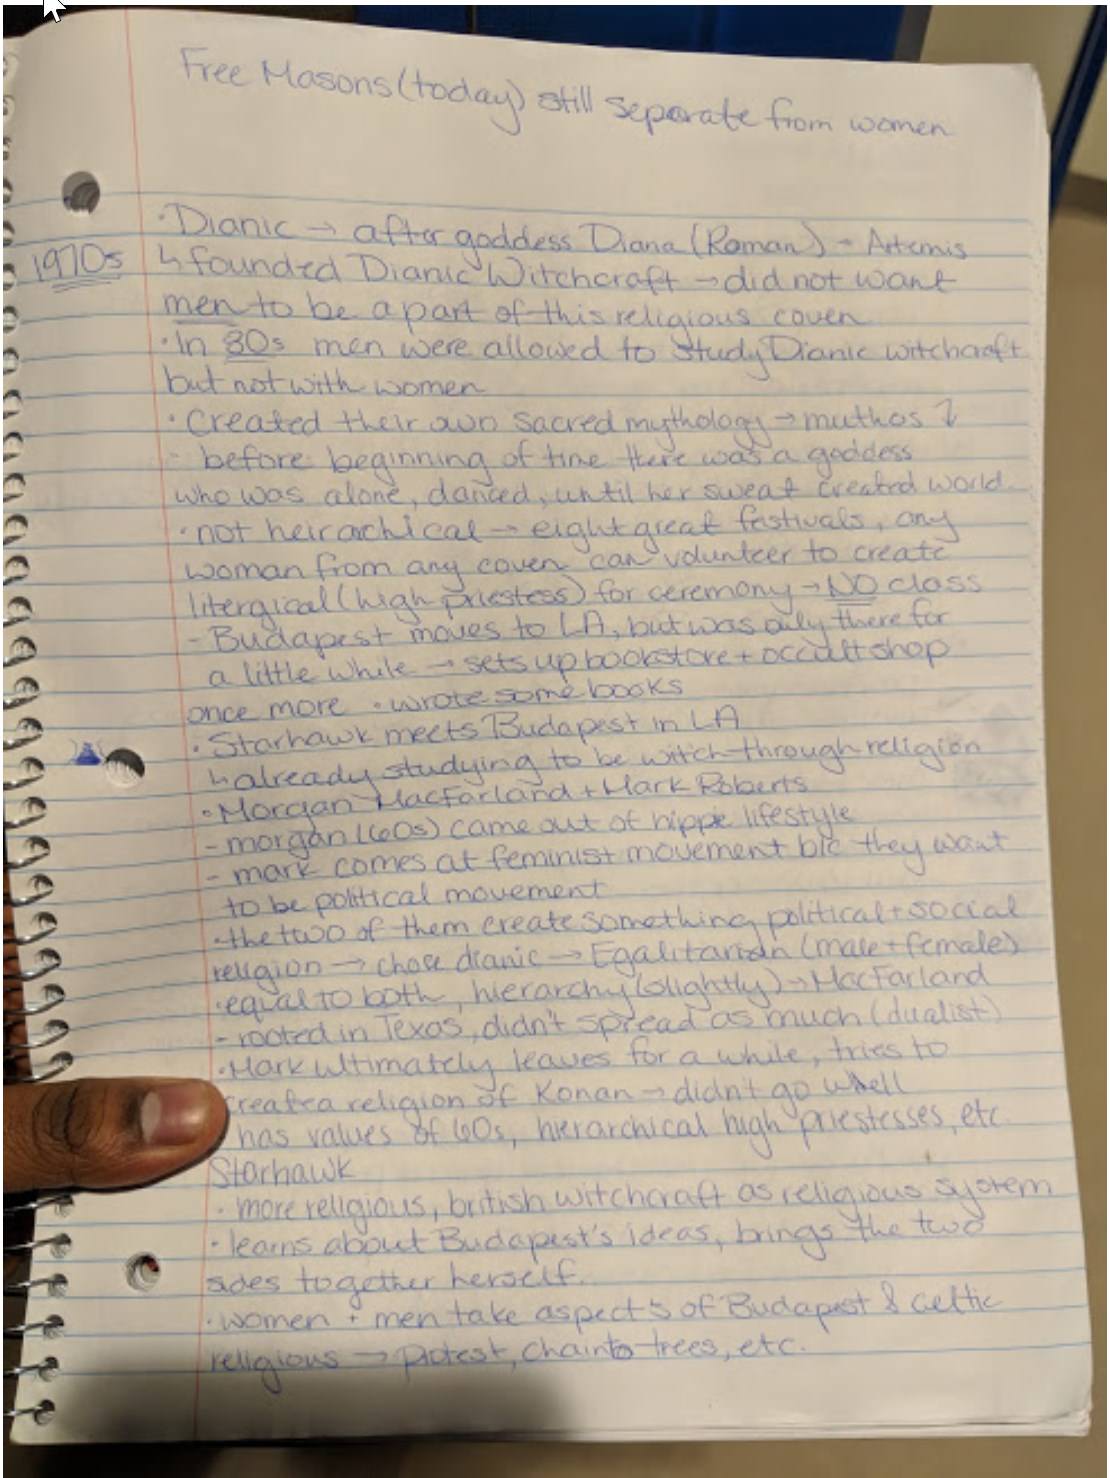 Free Masons (today) still separate from women
· Dianic → after goddess Diana (Roman) - Artemis
1970s ↳ founded Dianic Witchcraft → did not want
men to be a part of this religious coven
· In 80s men were allowed to study Dianic witchcraft
but not with women
· Created their own sacred mythology → muthos ↴
- before beginning of time there was a goddess
who was alone, danced, until her sweat created world
· not heirarchical → eight great festivals, any
woman from any coven can volunteer to create
litergical (high priestess) for ceremony → NO class
- Budapest moves to LA, but was only there for
a little while → sets up bookstore + occult shop
once more · wrote some books
· Starhawk meets Budapest in LA
↳ already studying to be witch through religion
· Morgan MacFarland + Mark Roberts
- morgan (60s) came out of hippie lifestyle
- mark comes at feminist movement b/c they want
to be political movement
· the two of them create something political + social
religion → chose dianic → Egalitarian (male + female)
· equal to both, hierarchy (slightly) → MacFarland
- rooted in Texas, didn't spread as much (dualist)
· Mark ultimately leaves for a while, tries to
create a religion of Konan → didn't go well
has values of 60s, hierarchical high priestesses, etc.
Starhawk
· more religious, british witchcraft as religious system
· learns about Budapest's ideas, brings the two
sides together herself.
· women + men take aspects of Budapest & celtic
religious → protest, chain to trees, etc.